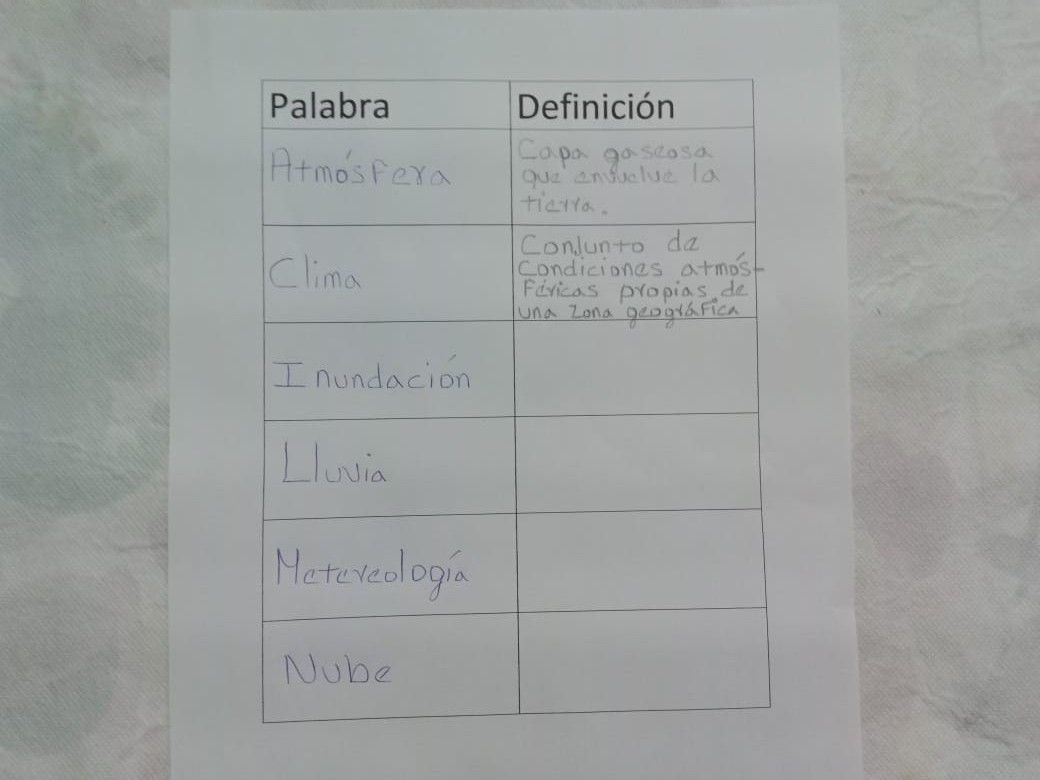 Palabra Definición
Atmósfera
Capa gaseosa
que envuelve la
tierra.
Clima
Conjunto de
condiciones atmós-
féricas propias de
una zona geográfica
Inundación
Lluvia
Metereología
Nube